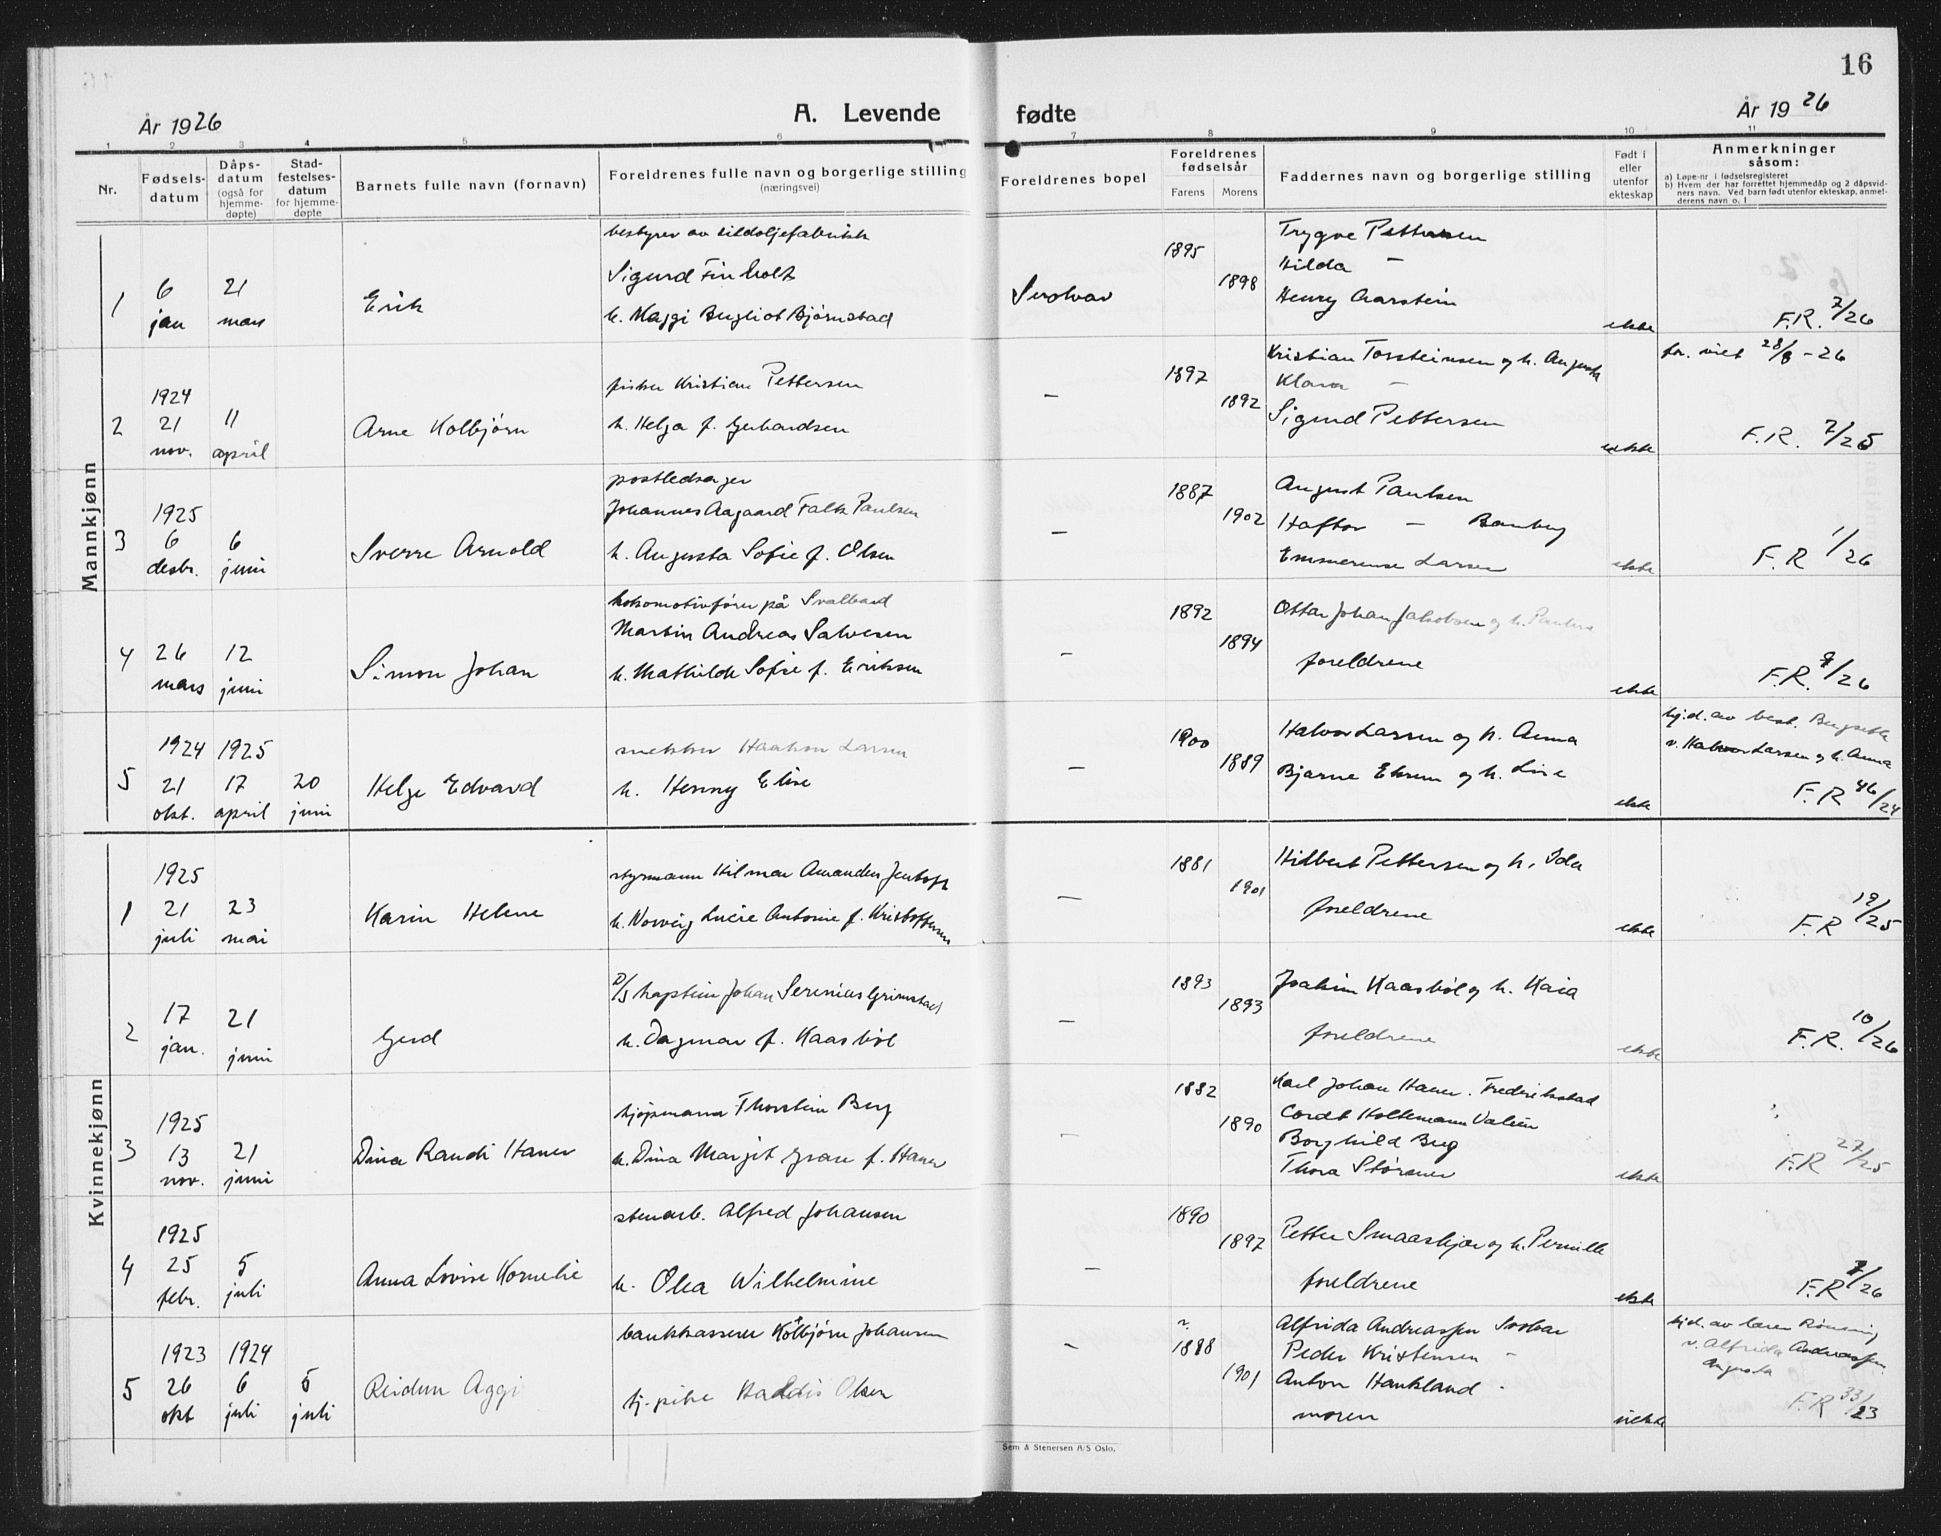 16
År 1926
A. Levende fødte
År 1926
1 2 3 4 5 6 7 8 9 10 11
Nr.
Fødsels-
datum
Dåps-
datum
(også for
hjemme-
døpte)
Stad-
festelses-
datum
for hjemme-
døpte
Barnets fulle navn (fornavn)
Foreldrenes fulle navn og borgerlige stilling
(næringsvei)
Foreldrenes bopel
Foreldrenes
fødselsår
Farens Morens
Faddernes navn og borgerlige stilling
Født i
eller
utenfor
ekteskap
Anmerkninger
såsom:
a) Løpe-nr i fødselsregisteret
b) Hvem der har forrettet hjemmedåp og 2 dåpsvid-
ners navn. Ved barn født utenfor ekteskap, anmel-
derens navn o. l
Mannkjønn
1
6
jan
21
mars
Erik
bestyrer av sildoljefabrikk
Sigurd Finholt
h. Maggi Bergliot Bjørnstad
Svolvær
1895
1898
Trygve Pettersen
Hilda —
Henry Aarstein
ekte
F.R. 7/26
2
1924
21
nov.
11
april
Arne Kolbjørn
fisker Kristian Pettersen
h. Helga f. Gerhardsen
—
1897
1892
Kristian Torsteinsen og h. Augusta
Klara —
Sigurd Pettersen
ekte
for. viet 28/8 - 26
F.R. 7/26
3
1925
6
desbr.
6
juni
Sverre Arnold
postledsager
Johannes Aagaard Falk Paulsen
h. Augusta Sofie f. Olsen
—
1887
1902
August Paulsen
Haftor — Bamberg
Emmerense Larsen
ekte
F.R 1/26
4
26
mars
12
juni
Simon Johan
lokomotivfører på Svalbard
Martin Andreas Salvesen
h. Mathilde Sofie f. Eriksen
—
1892
1894
Ottar Johan Jakobsen og h. Paula
foreldrene
ekte
F.R. 9/26
5
1924
21
okt.
1925
17
april
20
juni
Helge Edvard
snekker Haakon Larsen
h. Henny Elise
—
1900
1889
Halvor Larsen og h. Anna
Bjarne Ekrem og h. Lise
ekte
hj.d. av best. Bergseth
v. Halvor Larsen og h. Anna
F.R 46/24
Kvinnekjønn
1
1925
21
juli
23
mai
Karin Helene
styrmann Hilmar Amandus Jentoft
h. Norveig Lucie Antonie f. Kristoffersen
—
1881
1901
Hilbert Pettersen og h. Ida
foreldrene
ekte
F.R 19/25
2
17
jan.
21
juni
Gerd
D/S kaptein Johan Serenius Grimstad
h. Dagmar f. Kaasbøl
—
1893
1893
Joakim Kaasbøl og h. Kaia
foreldrene
ekte
F.R. 10/26
3
1925
13
nov.
21
juni
Dina Randi Haner
kjøpmann Thorstein Berg
h. Dina Margit Grase f. Haner
—
1882
1890
Karl Johan Haner. Frederikstad
Cordt Holtemann Valen
Borghild Berg
Thora Størmer
ekte
F.R 27/25
4
1925
25
febr.
5
juli
Anna Lovise Kornelie
stenarb. Alfred Johansen
h. Olea Wilhelmine
—
1890
1897
Petter Smaaskjær og h. Pernille
foreldrene
ekte
F.R 7/26
5
1923
26
okt
1924
6
juli
5
juli
Reidun Aggi
bankkasserer Kolbjørn Johansen
tj. pike Haldis Olsen
—
1888
1901
Alfrida Andreassen Svolvær
Peder Kristensen —
Anton Haukland -
moren
uekte
hj.d. av lærer Rønning
v. Alfrida Andreassen
Augusta
F.R 33/23
Sem & Stenersen A/S Oslo.